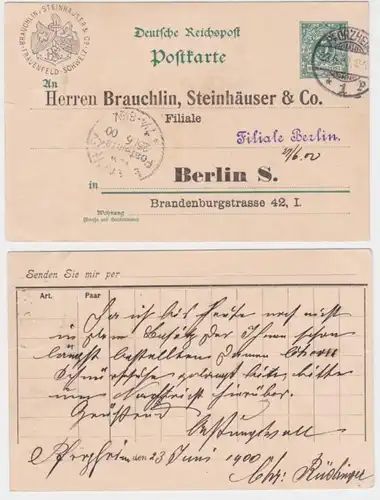 BRAUCHLIN, STEINHÄUSER & Co.
FRAUENFELD-SCHWEIZ
Deutsche Reichspost
Postkarte
An
Herren Brauchlin, Steinhäuser & Co.
Filiale
Filiale Berlin.
in Berlin S.
Brandenburgstrasse 42, I.
Wohnung
(Straße und Hausnummer)
Senden Sie mir per
Art. Paar
Da ich bis heute noch nicht
in dem Besitz der Ihnen schon
längst bestellten Damen
Schnürschuhe gelangt bin, bitte
um Nachricht hierüber.
Grüssend
Achtungsvoll
Pforzheim den 23 Juni 1900
Chr.